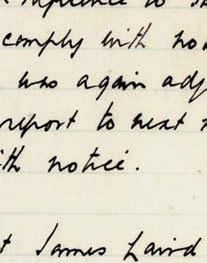 comply with no
was again adj
report to next
ith notice.
t James Laird